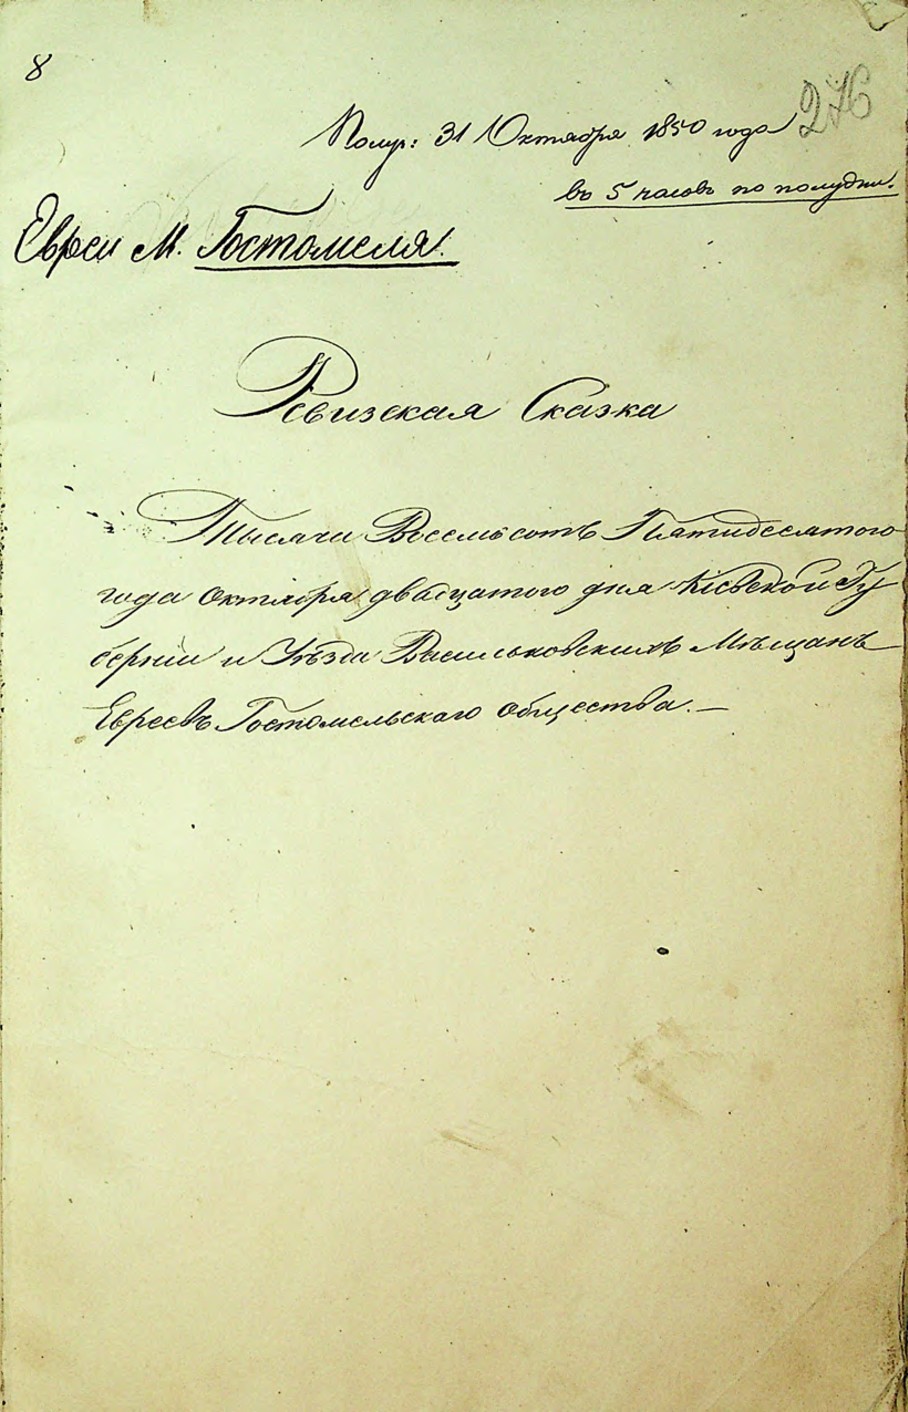 8
276
Получ: 31 Октября 1850 года
въ 5 часовъ по полудни.
Евреи М. Гостомеля.
Ревизская Сказка
Тысячи Восемьсотъ Пятидесятого
года октября двадцатого дня Кіевской Гу
берніи и Уѣзда Васильковскихъ Мѣщанъ
Евреевъ Гостомельскаго общества. —